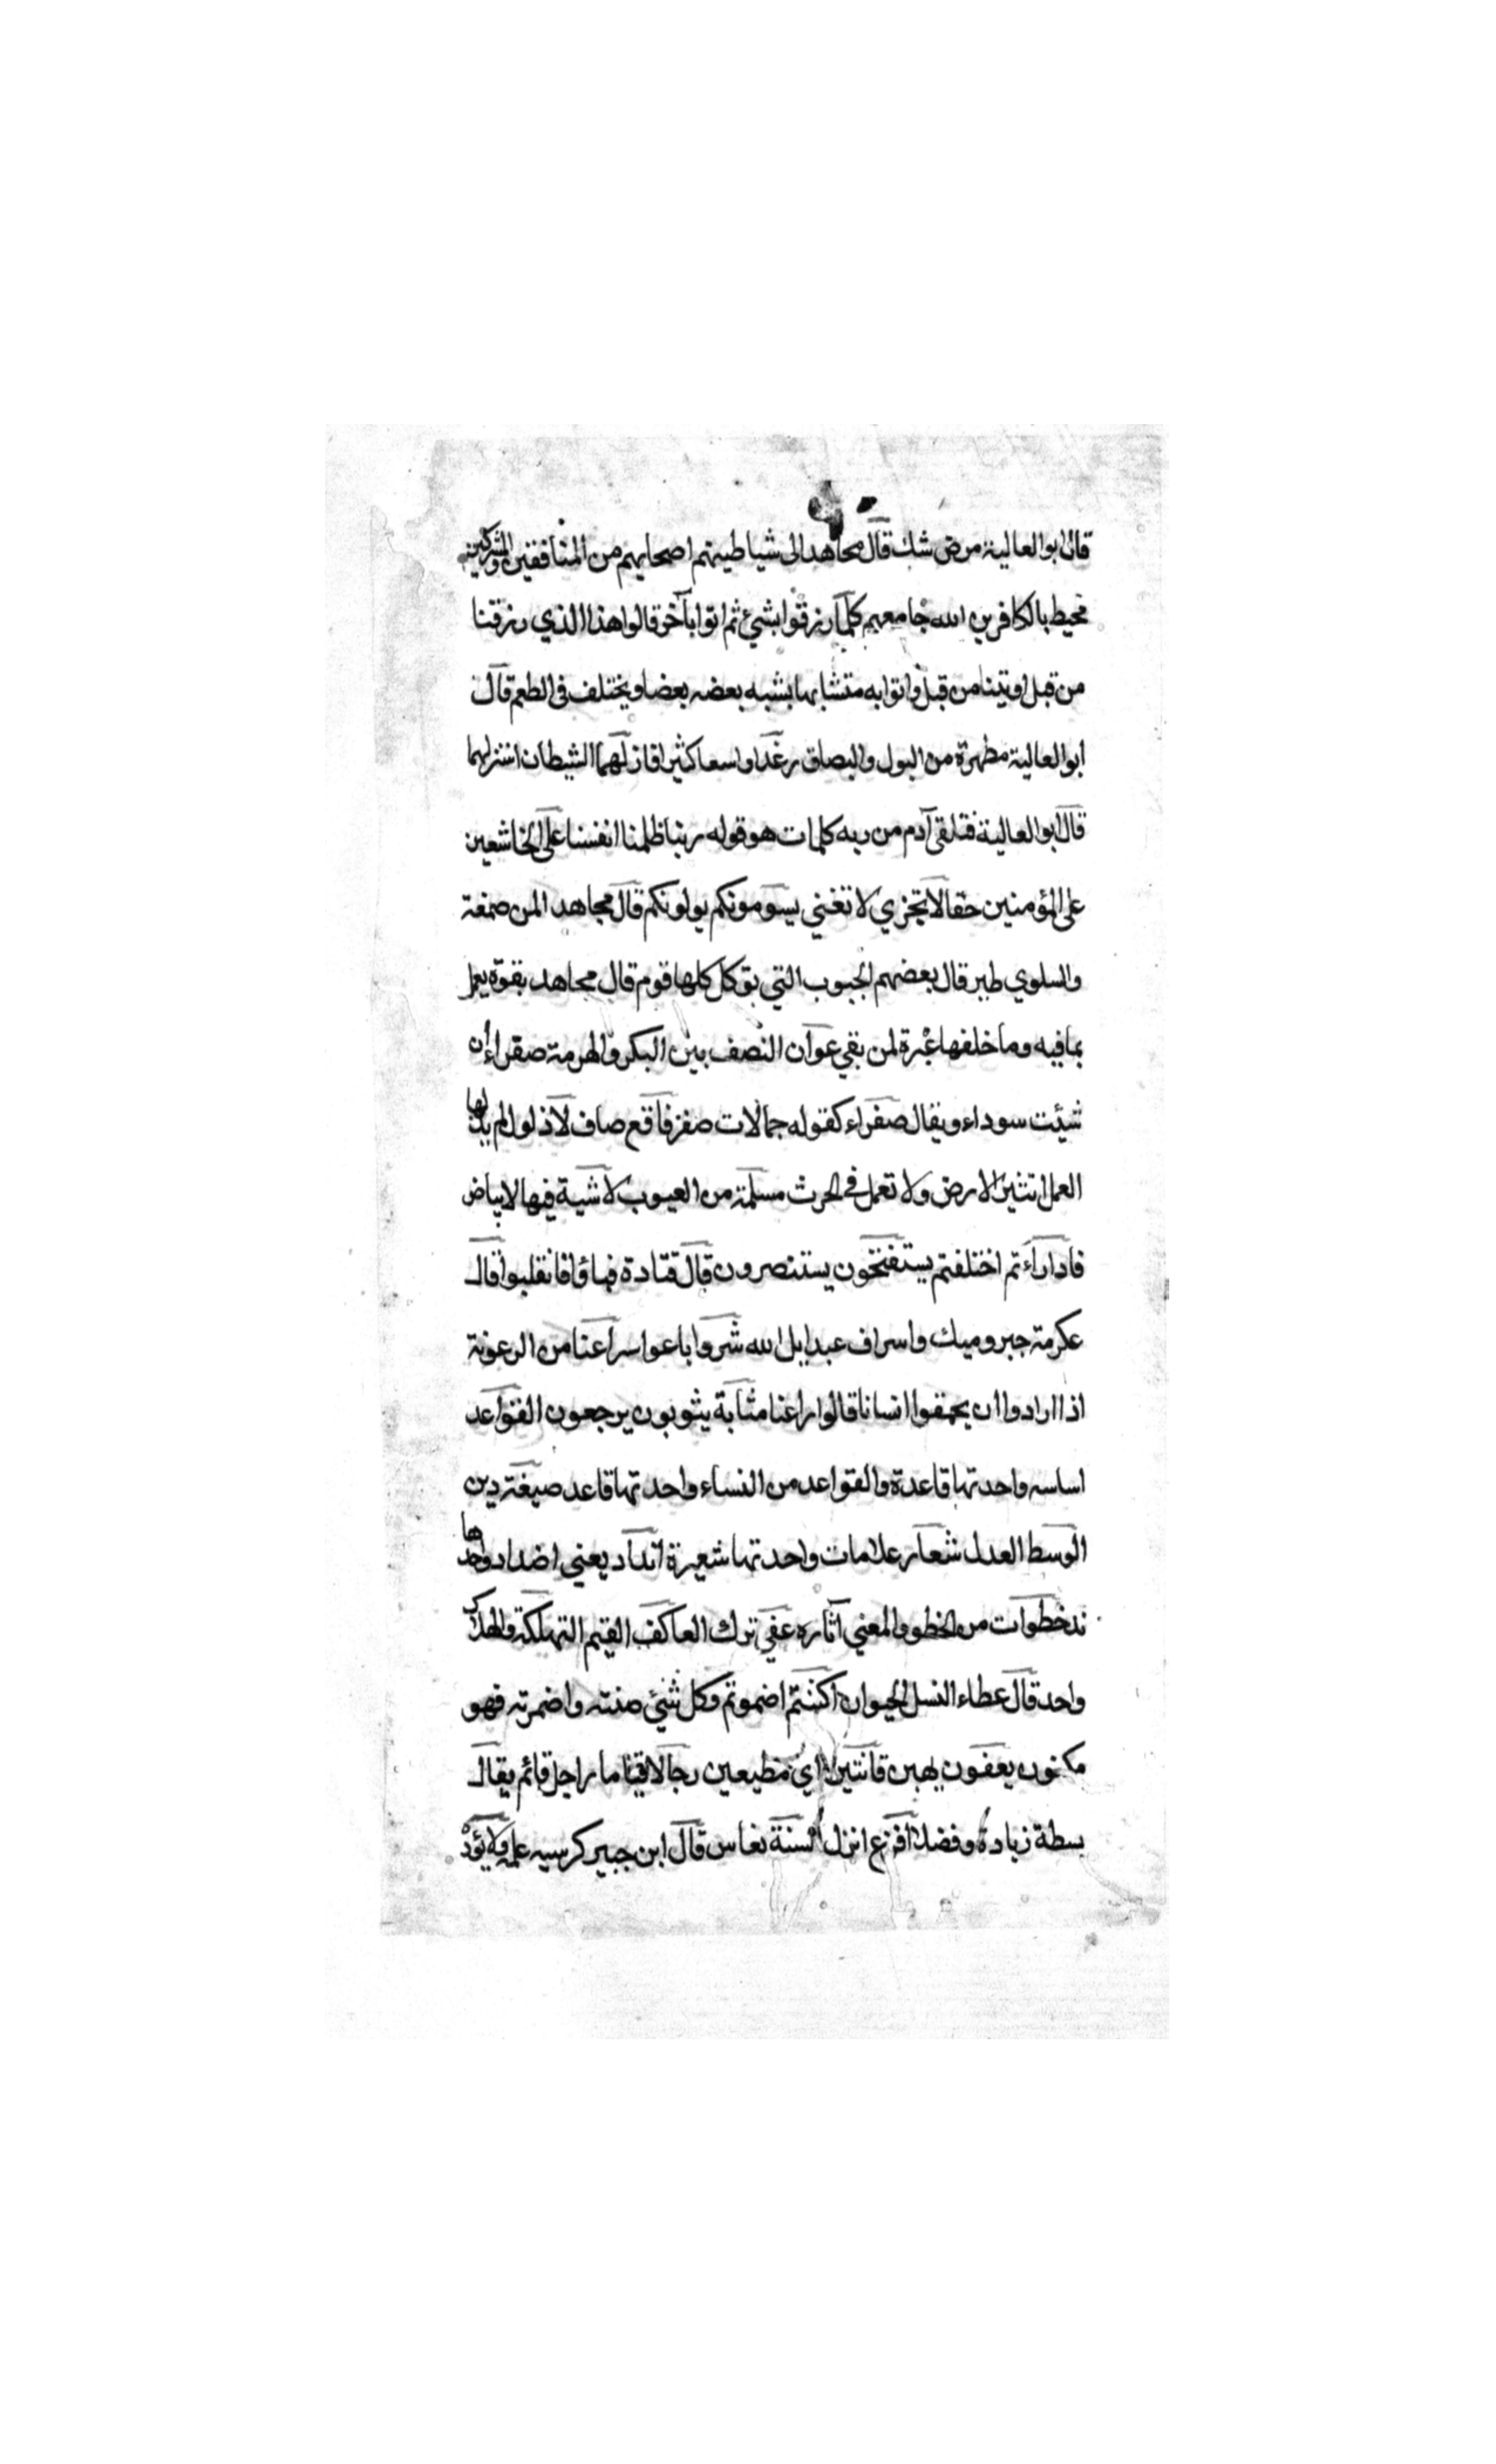 قال ابو العالية مرض شك قال مجاهد الى شياطينهم اصحابهم من المنافقين والمشركين
محيط بالكافرين الله جامعهم كلما رزقوا بشئ ثم اتوا بآخر قالوا هذا الذي رزقنا
من قبل اوتينا من قبل واتوا به متشابها يشبه بعضه بعضا ويختلف فى الطعم قال
ابو العالية مطهرة من البول والبصاق رغدا واسعا كثيرا فازلهما الشيطان استزلهما
قال ابو العالية فتلقى آدم من ربه كلمات هو قوله ربنا ظلمنا انفسنا على الخاشعين
على المؤمنين حقا لا تجزي لا تغني يسومونكم يولونكم قال مجاهد المن صمغة
والسلوي طير قال بعضهم الحبوب التي توكل كلها فوم قال مجاهد بقوة يعمل
بما فيه وما خلفها عبرة لمن بقي عوان النصف بين البكر والهرمة صفراء ان
شيئت سوداء ويقال صفراء كقوله جمالات صفر فاقع صاف لا ذلول لم يذلها
العمل تثير الارض ولا تعمل في الحرث مسلمة من العيوب لا شية فيها لا بياض
فادارأتم اختلفتم يستفتحون يستنصرون قال قتادة فباؤا فانقلبوا قال
عكرمة جبر وميك واسراف عبد ايل الله شروا باعوا راعنا من الرعونة
اذا ارادوا ان يحمقوا انسانا قالوا راعنا مثابة يثوبون يرجعون القواعد
اساسه واحدتها قاعدة والقواعد من النساء واحدتها قاعد صبغة دين
الوسط العدل شعار علامات واحدتها شعيرة اندادا يعني اضداد واحدها
ند خطوات من الخطو والمعني آثاره عفي ترك العاكف المقيم التهلكة والهلاك
واحد قال عطاء النسل الحيوان اكننتم اضمرتم وكل شئ صنته واضمرته فهو
مكنون يعفون يهبن قانتين اي مطيعين رجالا قياما راجل قائم يقال
بسطة زيادة وفضلا افرغ انزل السنة نعاس قال ابن جبير كرسيه علمه ولا يؤد